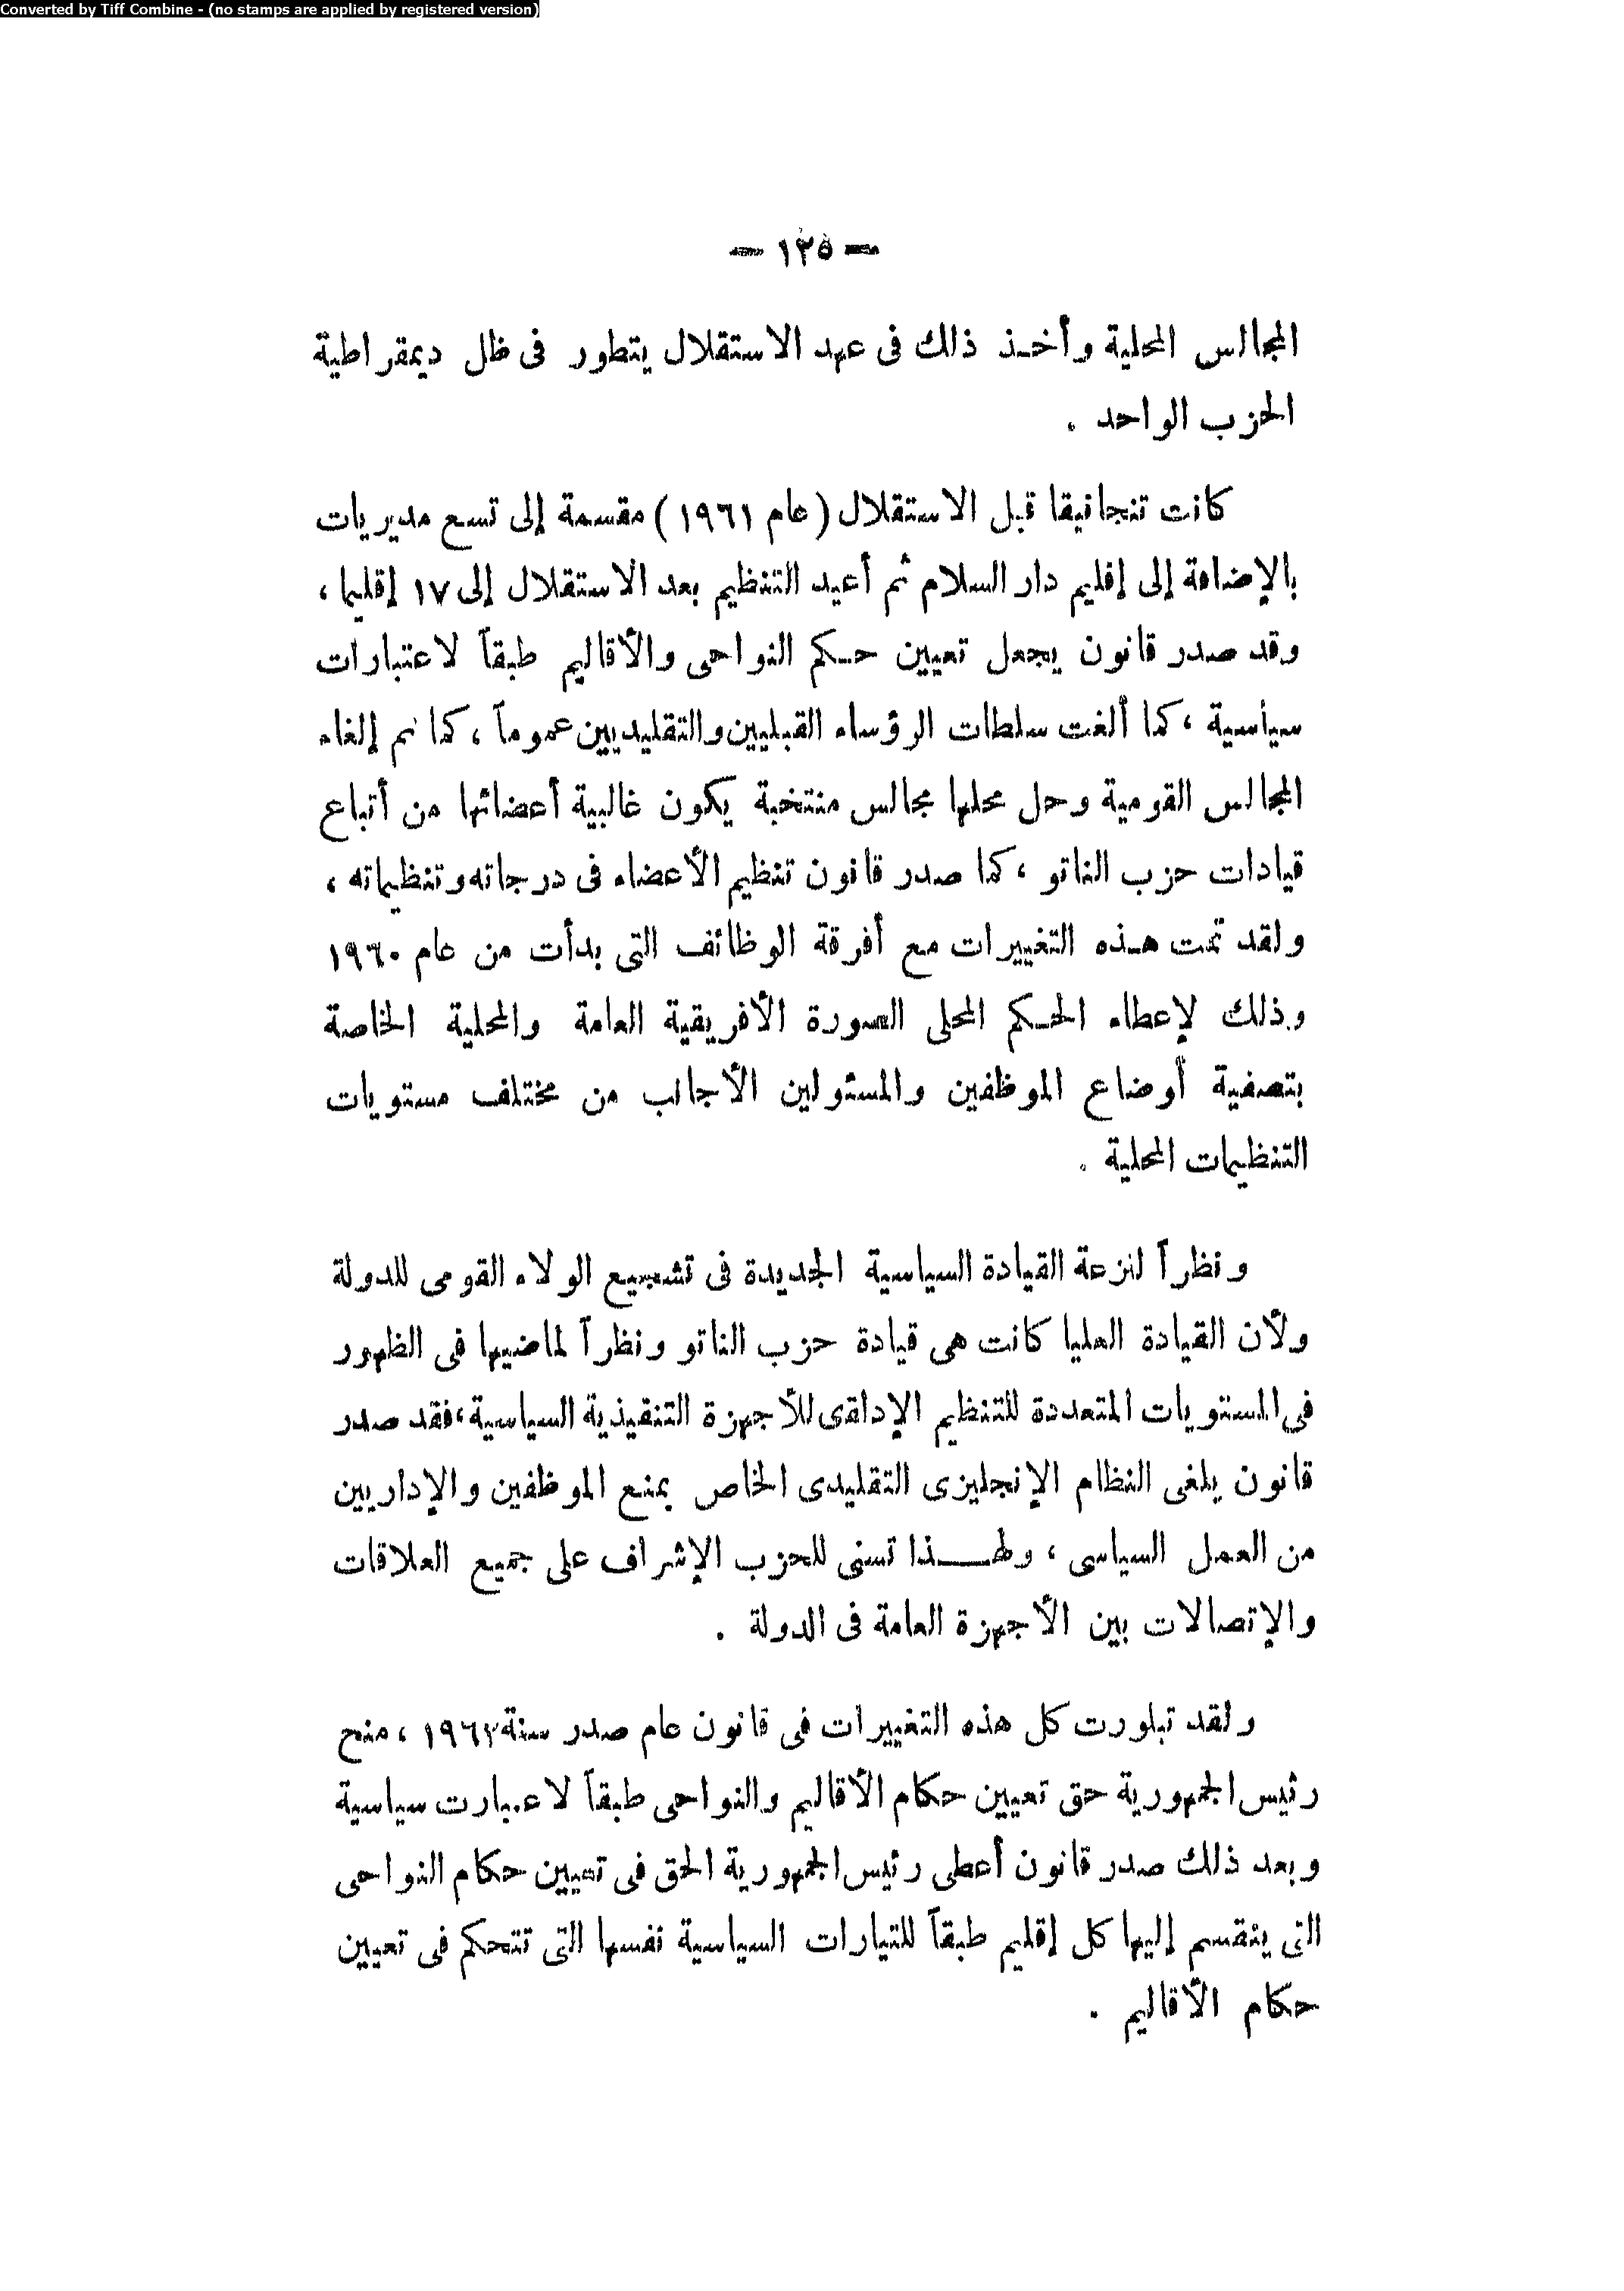 Converted by Tiff Combine - (no stamps are applied by registered version)
— ١٣٥ —
المجالس المحلية وأخذ ذلك فى عهد الاستقلال يتطور فى ظل ديمقراطية
الحزب الواحد .
كانت تنجانيقا قبل الاستقلال (عام ١٩٦١) مقسمة إلى تسع مديريات
بالإضافة إلى إقليم دار السلام ثم أعيد التنظيم بعد الاستقلال إلى ١٧ إقليما ،
وقد صدر قانون يجعل تعيين حكم النواحى والأقاليم طبقاً لاعتبارات
سياسية ، كما ألغت سلطات الرؤساء القبليين والتقليديين عموماً ، كما تم إلغاء
المجالس القومية وحل محلها مجالس منتخبة يكون غالبية أعضائها من أتباع
قيادات حزب الناتو ، كما صدر قانون تنظيم الأعضاء فى درجاته وتنظيماته ،
ولقد تمت هذه التغييرات مع أفرقة الوظائف التى بدأت من عام ١٩٦٠
وذلك لإعطاء الحكم المحلى الصورة الأفريقية العامة والمحلية الخاصة
بتصفية أوضاع الموظفين والمسئولين الأجانب من مختلف مستويات
التنظيمات المحلية .
ونظراً لنزعة القيادة السياسية الجديدة فى تشجيع الولاء القومى للدولة
ولأن القيادة العليا كانت هى قيادة حزب الناتو ونظراً لماضيها فى الظهور
فى المستويات المتعددة للتنظيم الإداقى للأجهزة التنقيذية السياسية ، فقد صدر
قانون يلغى النظام الإنجليزى التقليدى الخاص بمنع الموظفين والإداريين
من العمل السياسى ، ولهذا تسنى للحزب الإشراف على جميع العلاقات
والإتصالات بين الأجهزة العامة فى الدولة .
ولقد تبلورت كل هذه التغييرات فى قانون عام صدر سنة ١٩٦٢ ، منح
رئيس الجمهورية حق تعيين حكام الأقاليم والنواحى طبقاً لاعبارت سياسية
وبعد ذلك صدر قانون أعطى رئيس الجمهورية الحق فى تعيين حكام النواحى
التى ينقسم إليها كل إقليم طبقاً للتيارات السياسية نفسها التى تتحكم فى تعيين
حكام الأقاليم .